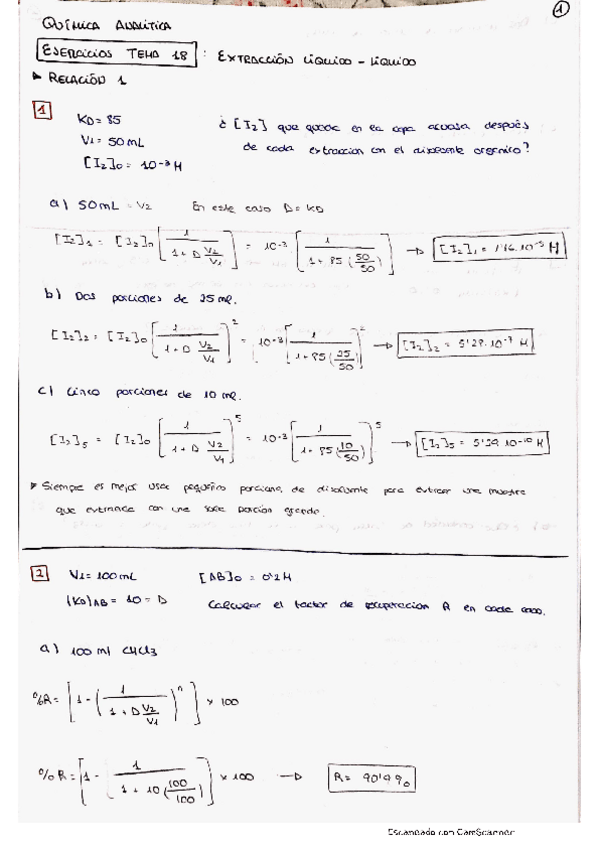 1
QUÍMICA ANALÍTICA
EJERCICIOS TEMA 18 : EXTRACCIÓN LÍQUIDO - LÍQUIDO
► RELACIÓN 1
1
KD = 85
V1 = 50 mL
[I2]0 = 10^-3 M
¿[I2] que queda en la capa acuosa después
de cada extracción con el disolvente orgánico?
a) 50 mL = V2 En este caso D = KD
[I2]1 = [I2]0 [1 / (1 + D V2/V1)] = 10^-3 [1 / (1 + 85 (50/50))] → [I2]1 = 1'16·10^-5 M
b) Dos porciones de 25 ml.
[I2]2 = [I2]0 [1 / (1 + D V2/V1)]^2 = 10^-3 [1 / (1 + 85 (25/50))]^2 → [I2]2 = 5'28·10^-7 M
c) Cinco porciones de 10 ml.
[I2]5 = [I2]0 [1 / (1 + D V2/V1)]^5 = 10^-3 [1 / (1 + 85 (10/50))]^5 → [I2]5 = 5'29·10^-10 M
► Siempre es mejor usar pequeñas porciones de disolvente para extraer una muestra
que extraerla con una sola porción grande.
2
V1 = 100 mL [AB]0 = 0'2 M
(KD)AB = 10 = D Calcular el factor de recuperación R en cada caso.
a) 100 ml CHCl3
%R = [1 - (1 / (1 + D V2/V1))^n] × 100
%R = [1 - 1 / (1 + 10 (100/100))] × 100 → R = 90'9 %
Escaneado con CamScanner